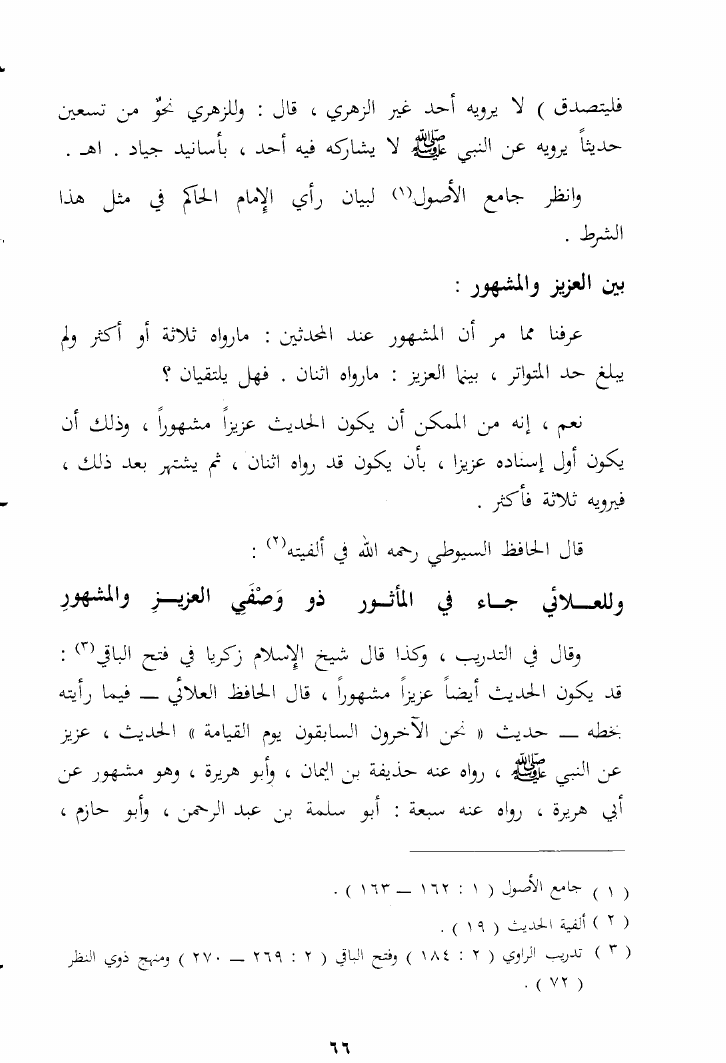 فليتصدق ) لا يرويه أحد غير الزهري ، قال : وللزهري نحوٌ من تسعين
حديثاً يرويه عن النبي ﷺ لا يشاركه فيه أحد ، بأسانيد جياد . اهـ .
وانظر جامع الأصول(١) لبيان رأي الإمام الحاكم في مثل هذا
الشرط .
بين العزيز والمشهور :
عرفنا مما مر أن المشهور عند المحدثين : مارواه ثلاثة أو أكثر ولم
يبلغ حد المتواتر ، بينما العزيز : مارواه اثنان . فهل يلتقيان ؟
نعم ، إنه من الممكن أن يكون الحديث عزيزاً مشهوراً ، وذلك أن
يكون أول إسناده عزيزا ، بأن يكون قد رواه اثنان ، ثم يشتهر بعد ذلك ،
فيرويه ثلاثة فأكثر .
قال الحافظ السيوطي رحمه الله في ألفيته(٢) :
وللعـــلائي جـــاء في المأثــور ذو وَصْفَيِ العزيـــزِ والمشهورِ
وقال في التدريب ، وكذا قال شيخ الإسلام زكريا في فتح الباقي(٣) :
قد يكون الحديث أيضاً عزيزاً مشهوراً ، قال الحافظ العلائي — فيما رأيته
بخطه — حديث « نحن الآخرون السابقون يوم القيامة » الحديث ، عزيز
عن النبي ﷺ ، رواه عنه حذيفة بن اليمان ، وأبو هريرة ، وهو مشهور عن
أبي هريرة ، رواه عنه سبعة : أبو سلمة بن عبد الرحمن ، وأبو حازم ،
( ١ ) جامع الأصول ( ١ : ١٦٢ — ١٦٣ ) .
( ٢ ) ألفية الحديث ( ١٩ ) .
( ٣ ) تدريب الراوي ( ٢ : ١٨٤ ) وفتح الباقي ( ٢ : ٢٦٩ — ٢٧٠ ) ومنهج ذوي النظر
( ٧٢ ) .
٦٦